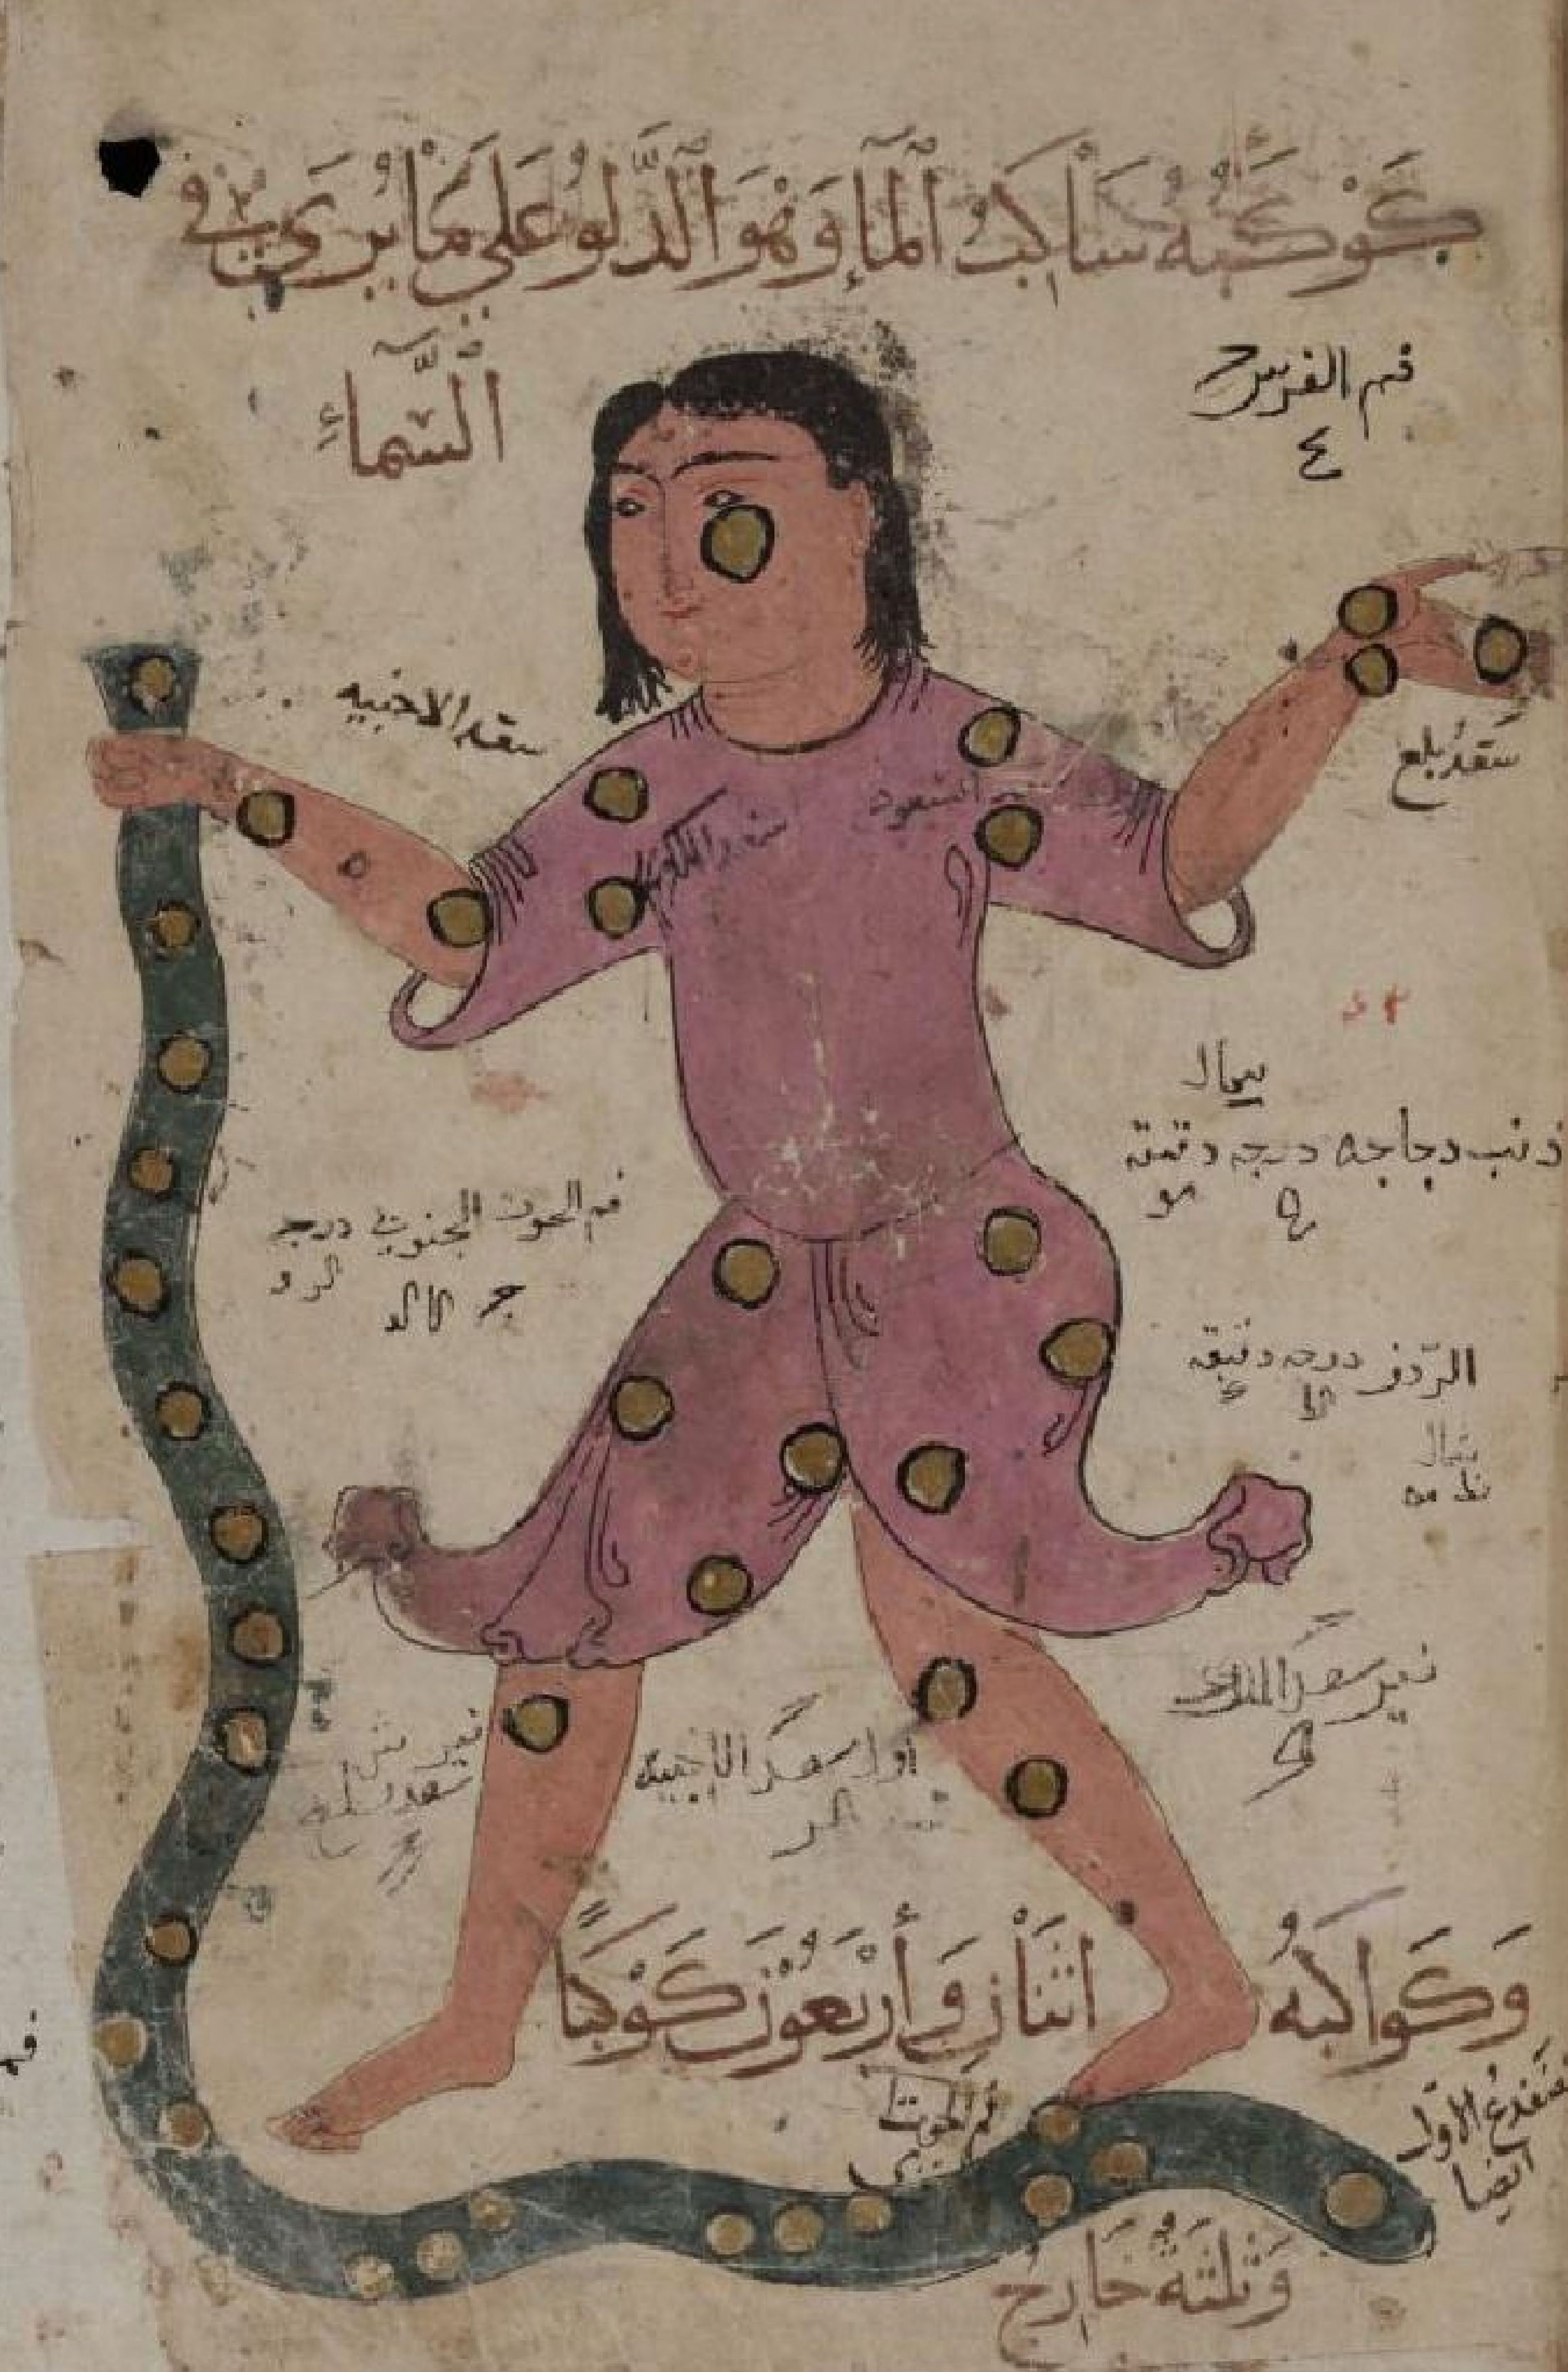 كَوْكَبُه سَاكب ٱلمآءِ وَهْوَ ٱلدَّلوُ عَلي مَا يُرَي في
ٱلسَّمآءِ
فم الفرس
٤
سعد الاخبيه
سَعدُ بلع
السعود
سعد الملك
شمال
ذنب دجاجه درجه دقيقة
فم الحوت الجنوبي درجه
الرّدف درجه دقيقة
شمال
نير سعد الملك
اول سعد الاخبية
نير من
سعد بلع
وَكَوَاكبُه اثنَان وَأَربَعُوْنَ كَوْكَباً
فم الحوت
ضفدع الاوّل
ايضا
وَثلثَةُ خَارِجُ